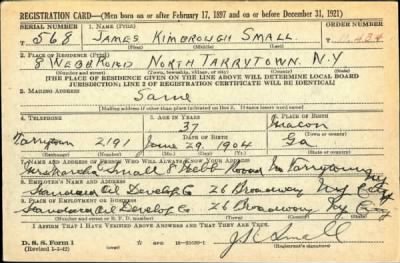 REGISTRATION CARD—(Men born on or after February 17, 1897 and on or before December 31, 1921)
SERIAL NUMBER 1. NAME (Print) ORDER NUMBER
T 568 JAMES KIMBROUGH SMALL
(First) (Middle) (Last)
2. PLACE OF RESIDENCE (Print)
8 WEBB ROAD NORTH TARRYTOWN. N.Y
(Number and street) (Town, township, village, or city) (County) (State)
[THE PLACE OF RESIDENCE GIVEN ON THE LINE ABOVE WILL DETERMINE LOCAL BOARD
JURISDICTION; LINE 2 OF REGISTRATION CERTIFICATE WILL BE IDENTICAL]
3. MAILING ADDRESS
Same
[Mailing address if other than place indicated on line 2. If same insert word same]
4. TELEPHONE 5. AGE IN YEARS 6. PLACE OF BIRTH
37 Macon
DATE OF BIRTH (Town or county)
Tarrytown 2191 June 29 1904 Ga
(Exchange) (Number) (Mo.) (Day) (Yr.) (State or country)
7. NAME AND ADDRESS OF PERSON WHO WILL ALWAYS KNOW YOUR ADDRESS
Small 8 Webb Road No Tarrytown NY
8. EMPLOYER'S NAME AND ADDRESS
Standard Oil Develop. Co 26 Broadway NY City
9. PLACE OF EMPLOYMENT OR BUSINESS
Standard Oil Develop. Co 26 Broadway NY City
(Number and street or R. F. D. number) (Town) (County) (State)
I AFFIRM THAT I HAVE VERIFIED ABOVE ANSWERS AND THAT THEY ARE TRUE.
D. S. S. Form 1
(Revised 1-1-42) (over) J K Small
(Registrant's signature)